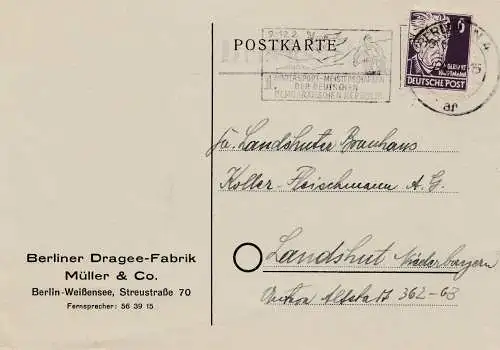 9.-12.2.
WINTERSPORT-MEISTERSCHAFTEN
DER DEUTSCHEN
DEMOKRATISCHEN REPUBLIK
BERLIN W 4
ar
6
GERHART
HAUPTMANN
DEUTSCHE POST
POSTKARTE
Fa. Landshuter Brauhaus
Koller-Fleischmann A.G.
Landshut Niederbayern
Altstadt 362-63
Berliner Dragee-Fabrik
Müller & Co.
Berlin-Weißensee, Streustraße 70
Fernsprecher: 56 39 15